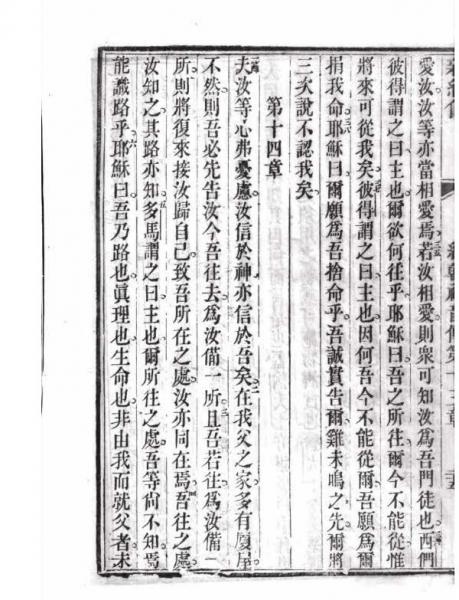 愛汝汝等亦當相愛焉若汝相愛則衆可知汝爲吾門徒也西們
彼得謂之曰主也爾欲何往乎耶穌曰吾之所往爾今不能從惟
將來可從我矣彼得謂之曰主也因何吾今不能從爾吾願爲爾
捐我命耶穌曰爾願爲吾捨命乎吾誠實告爾雞未鳴之先爾將
三次說不認我矣
第十四章
夫汝等心弗憂慮汝信於神亦信於吾矣在我父之家多有厦屋
不然則吾必先告汝今吾往去爲汝備一所且吾若往爲汝備一
所則將復來接汝歸自己致吾所在之處汝亦同在焉吾往之處
汝知之其路亦知多馬謂之曰主也爾所往之處吾等尚不知焉
能識路乎耶穌曰吾乃路也眞理也生命也非由我而就父者未